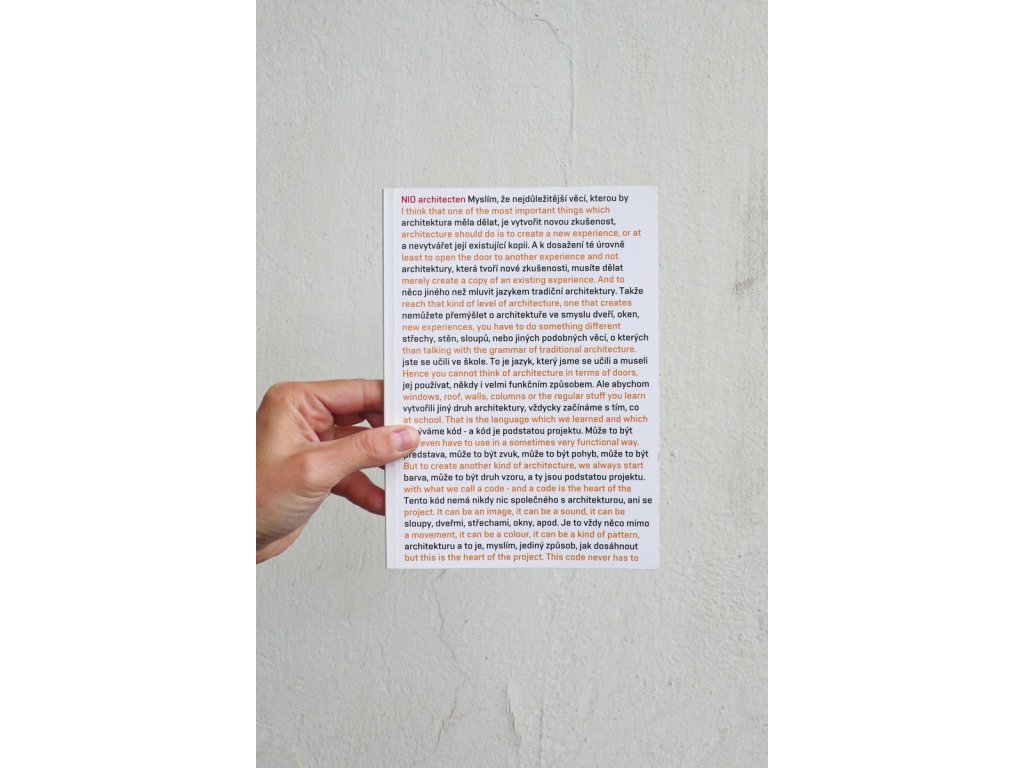 NIO architecten Myslím, že nejdůležitější věcí, kterou by
I think that one of the most important things which
architektura měla dělat, je vytvořit novou zkušenost,
architecture should do is to create a new experience, or at
a nevytvářet její existující kopii. A k dosažení té úrovně
least to open the door to another experience and not
architektury, která tvoří nové zkušenosti, musíte dělat
merely create a copy of an existing experience. And to
něco jiného než mluvit jazykem tradiční architektury. Takže
reach that kind of level of architecture, one that creates
nemůžete přemýšlet o architektuře ve smyslu dveří, oken,
new experiences, you have to do something different
střechy, stěn, sloupů, nebo jiných podobných věcí, o kterých
than talking with the grammar of traditional architecture.
jste se učili ve škole. To je jazyk, který jsme se učili a museli
Hence you cannot think of architecture in terms of doors,
jej používat, někdy i velmi funkčním způsobem. Ale abychom
windows, roof, walls, columns or the regular stuff you learn
vytvořili jiný druh architektury, vždycky začínáme s tím, co
at school. That is the language which we learned and which
ýváme kód - a kód je podstatou projektu. Může to být
even have to use in a sometimes very functional way.
představa, může to být zvuk, může to být pohyb, může to být
But to create another kind of architecture, we always start
barva, může to být druh vzoru, a ty jsou podstatou projektu.
with what we call a code - and a code is the heart of the
Tento kód nemá nikdy nic společného s architekturou, ani se
project. It can be an image, it can be a sound, it can be
sloupy, dveřmi, střechami, okny, apod. Je to vždy něco mimo
a movement, it can be a colour, it can be a kind of pattern,
architekturu a to je, myslím, jediný způsob, jak dosáhnout
but this is the heart of the project. This code never has to